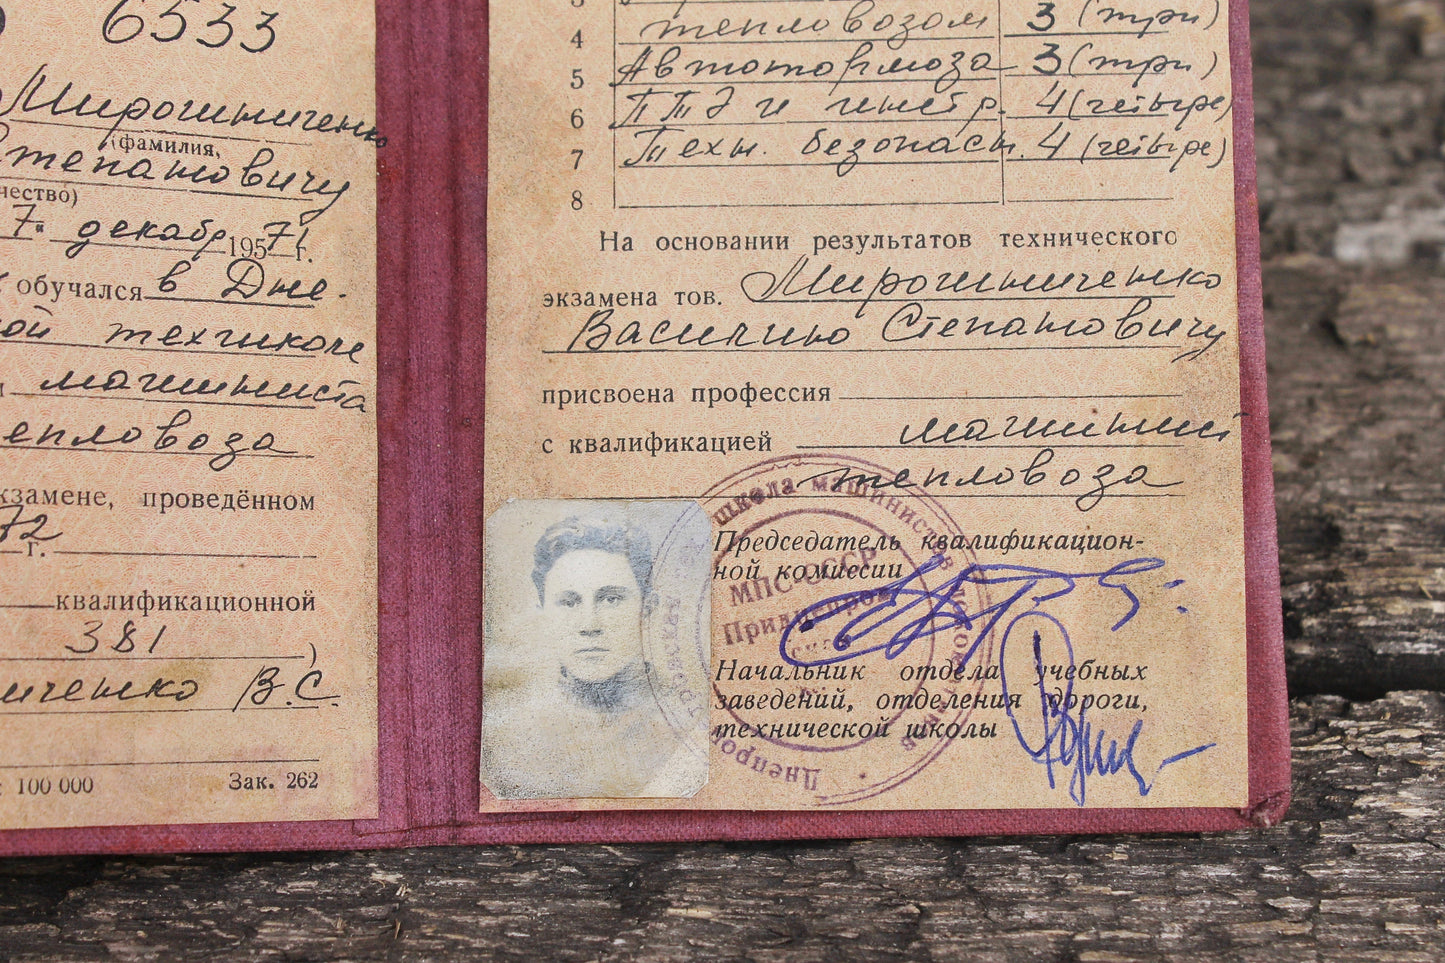 6533
Мирошниченко
(фамилия,
Степановичу
чество)
7. декабр 1957 71 г.
обучался в Дне-
ой техшколе
машиниста
епловоза
кзамене, проведённом
72 г.
квалификационной
381 )
иченко В.С.
100 000 Зак. 262
4 тепловозом 3 (три)
5 Автотормоза 3 (три)
6 ПТЭ и инстр. 4 (четыре)
7 Техн. безопасн. 4 (четыре)
8
На основании результатов технического
экзамена тов. Мирошниченко
Василию Степановичу
присвоена профессия
с квалификацией машинист
тепловоза
Председатель квалификацион-
ной комиссии
Начальник отдела учебных
заведений, отделения дороги,
технической школы
школа машинистов
МПС-СССР
Приднепров